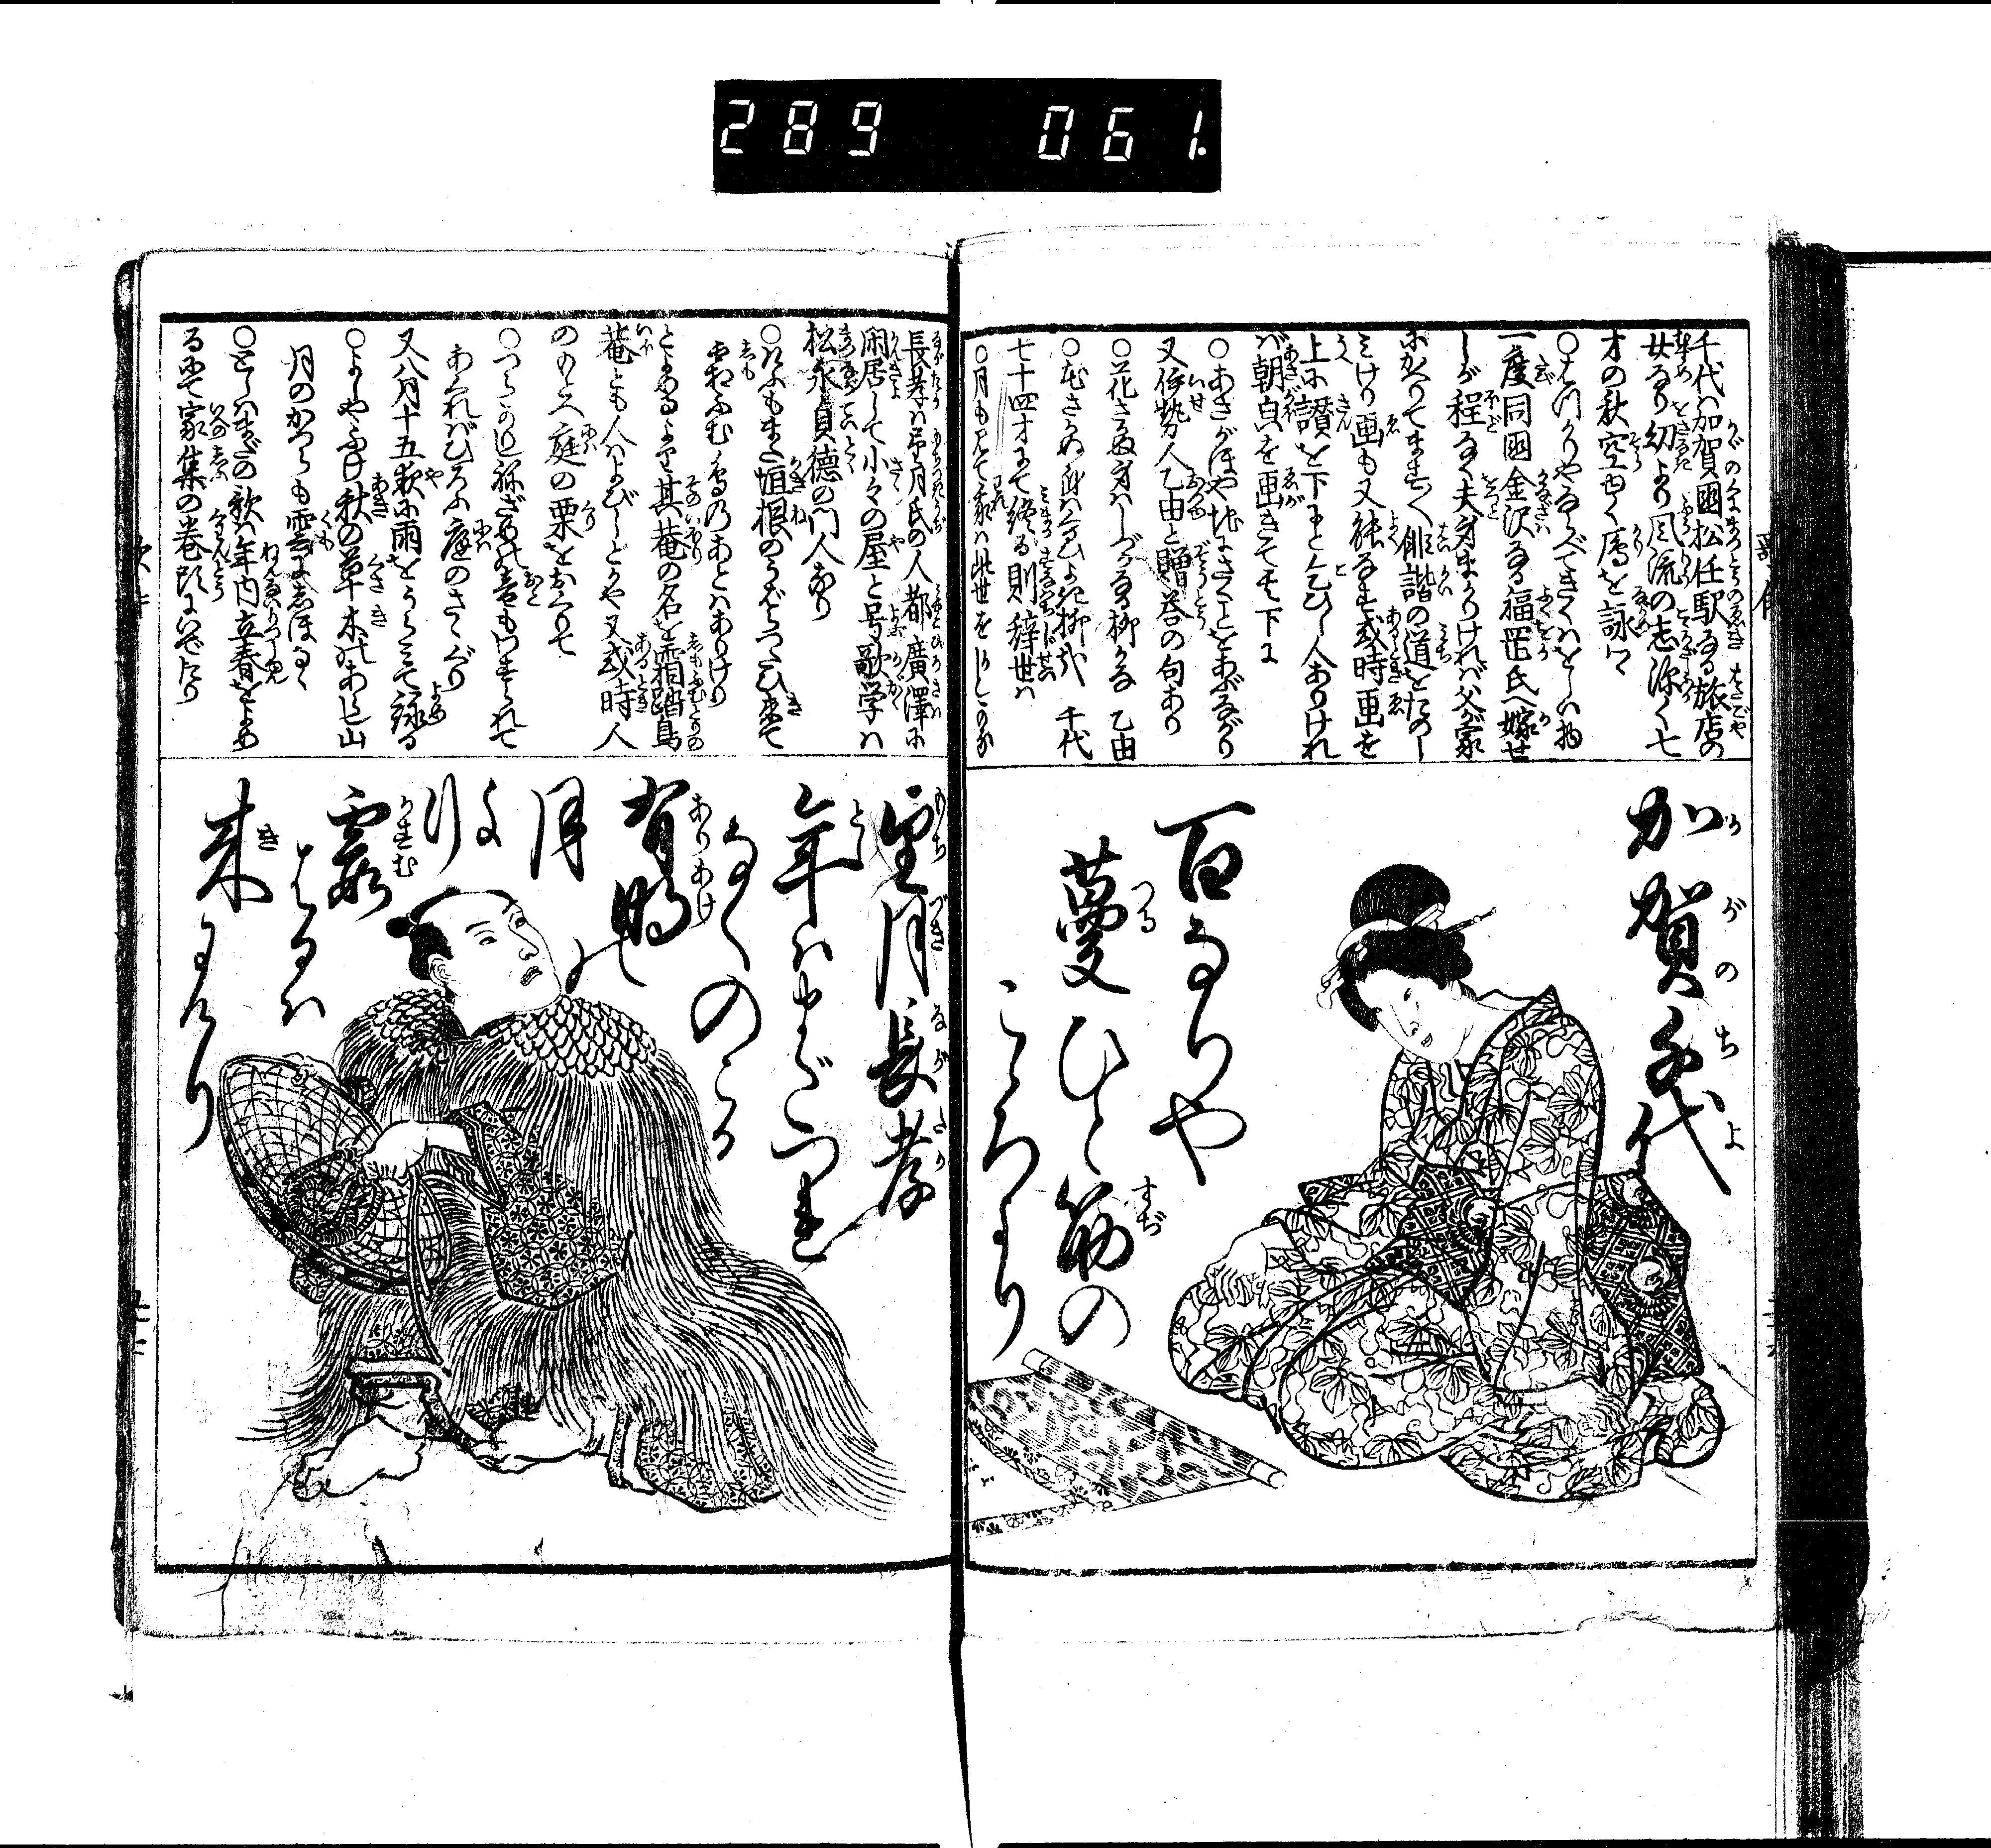 289 061.
千代ハ加賀国松任駅なる旅店の
女なり幼より風流の志深く七
才の秋空ゆく鴈を詠て
一度同国金沢なる福岡氏へ嫁せ
しが程なく夫身まかりければ父が家
にかへりてますく俳諧の道をたのし
みけり画も又能なせり或時画を
上に讃を下にと乞ひし人ありけれ
ば朝㒵を画きて其下に
○あさがほや地にさくことをあぶながり
又伊勢人乙由と贈答の句あり
○花さかぬ身ハしづかなる柳かな 乙由
千代
七十四才にて終る則辞世ハ
○月も見て我ハ此世をかしくかな
加賀千代
百なりや
蔓ひと筋の
こゝろより
長孝ハ望月氏の人都廣澤に
閑居して小々の屋と号歌学ハ
松永貞徳の門人なり
○けふもまた垣根のうばらつたひ来て
雪ふむ鳥のあとハありけり
とよめるより其菴の名を霜踏鳥
菴とも人ハよびしとかや又或時人
のもとへ庭の栗をおくりて
あくればひろふ庭のさゝぐり
又八月十五夜に雨をうらみて詠る
○よしやふけ秋の草木のあらし山
月のかつらも雲にしほるゝ
○としハまだの歌ハ年内立春をよめ
るにて家集の巻頭にいでたり
望月長孝
年ハまだつれ
なくのこる
有明の
月
より
霞
はるハ
来にけり